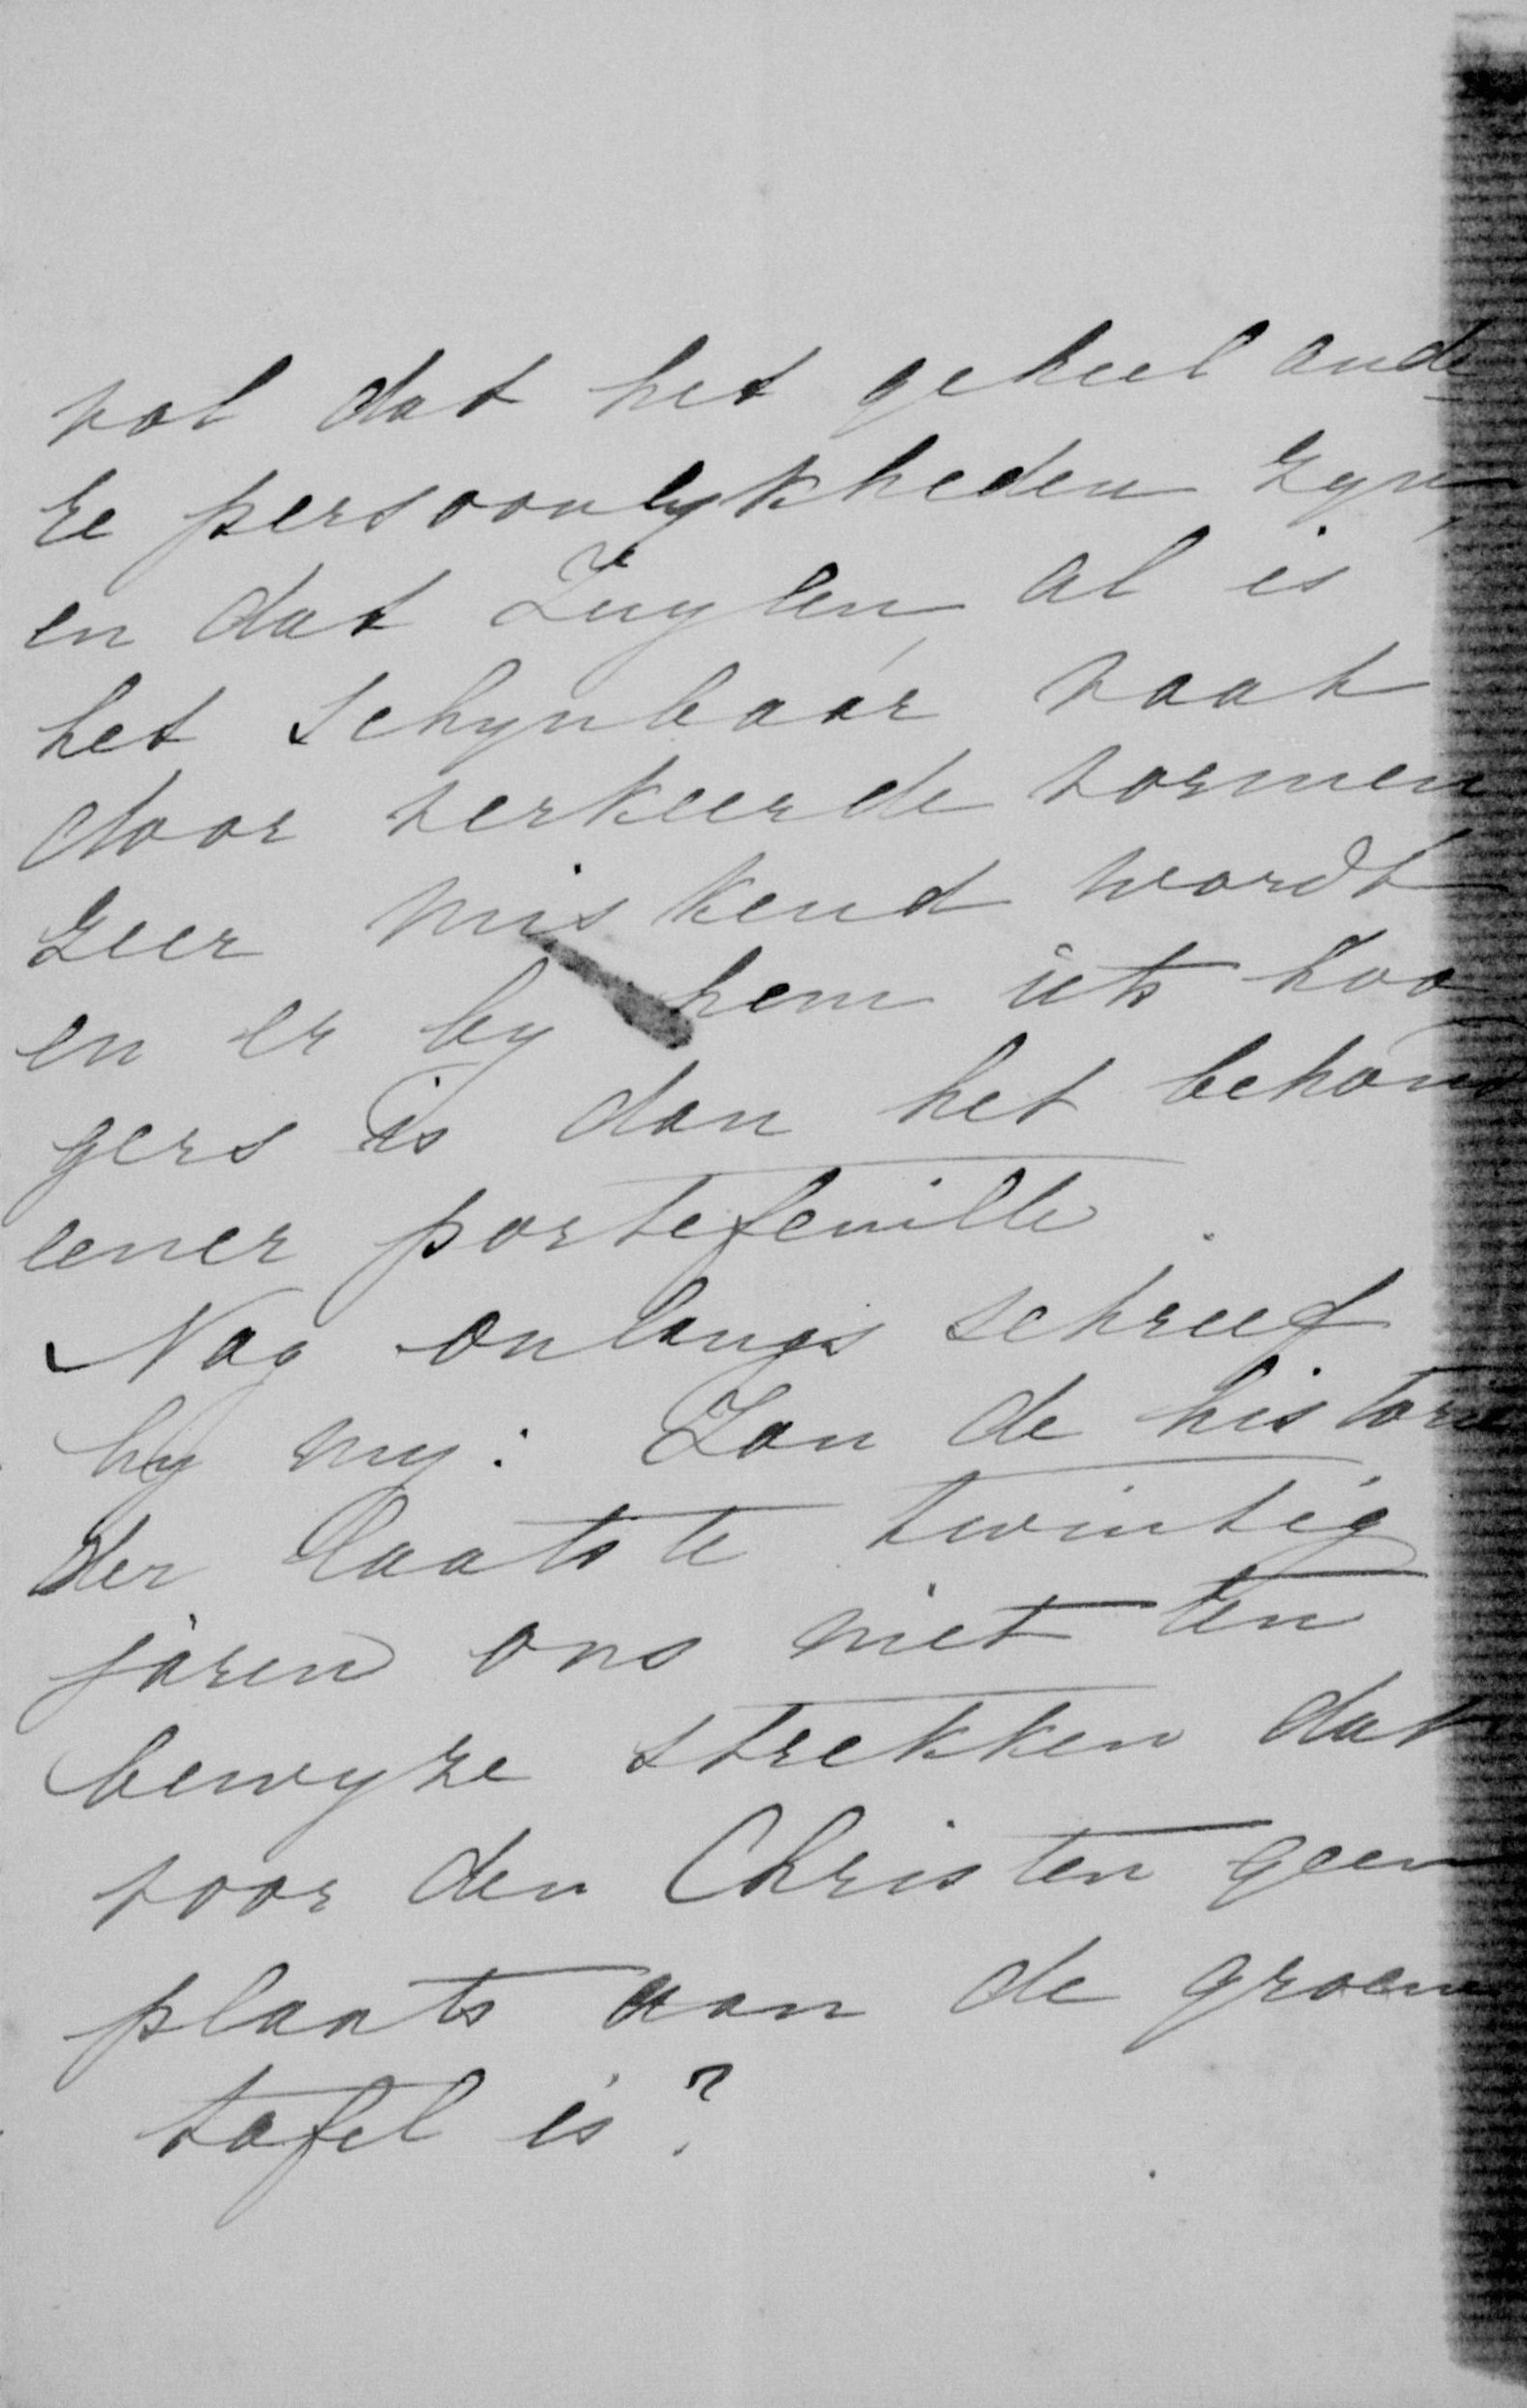 vol dat het geheel ande
re persoonlykheden zyn,
en dat Zuylen, al is
het schynbaar vaak
door verkeerde vormen
zeer miskend wordt
en er by hem iets hoo
gers is dan het behoud
eener portefeuille.
Nog onlangs schreef
hy my: Zou de historie
der laatste twintig
jaren ons niet ten
bewyze strekken dat
voor den Christen geen
plaats aan de groene
tafel is?